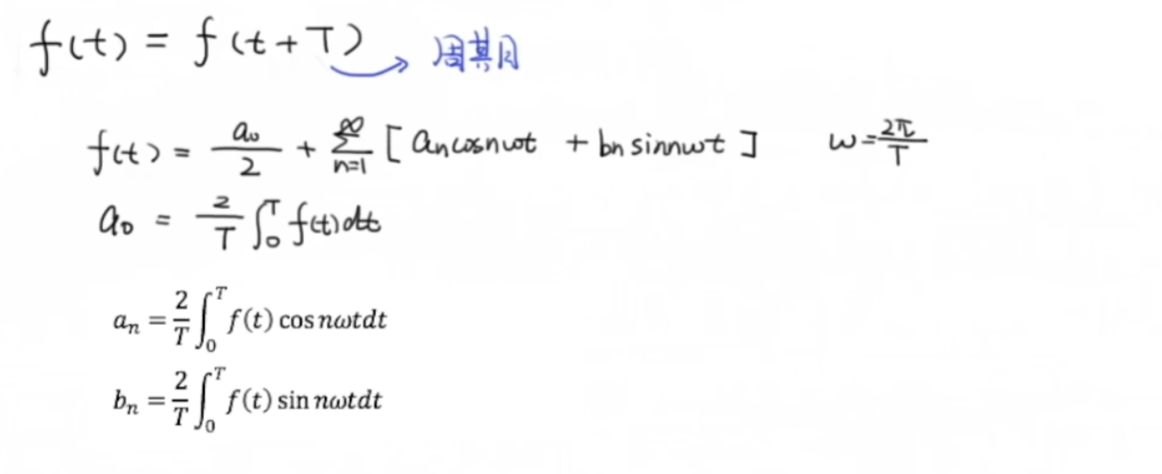 f(t) = f(t+T) 周期
f(t) = a₀/2 + ∑_{n=1}^{∞} [ aₙcosnωt + bₙsinnωt ] ω=2π/T
a₀ = 2/T ∫₀ᵀ f(t)dt
aₙ = 2/T ∫₀ᵀ f(t) cos nωtdt
bₙ = 2/T ∫₀ᵀ f(t) sin nωtdt